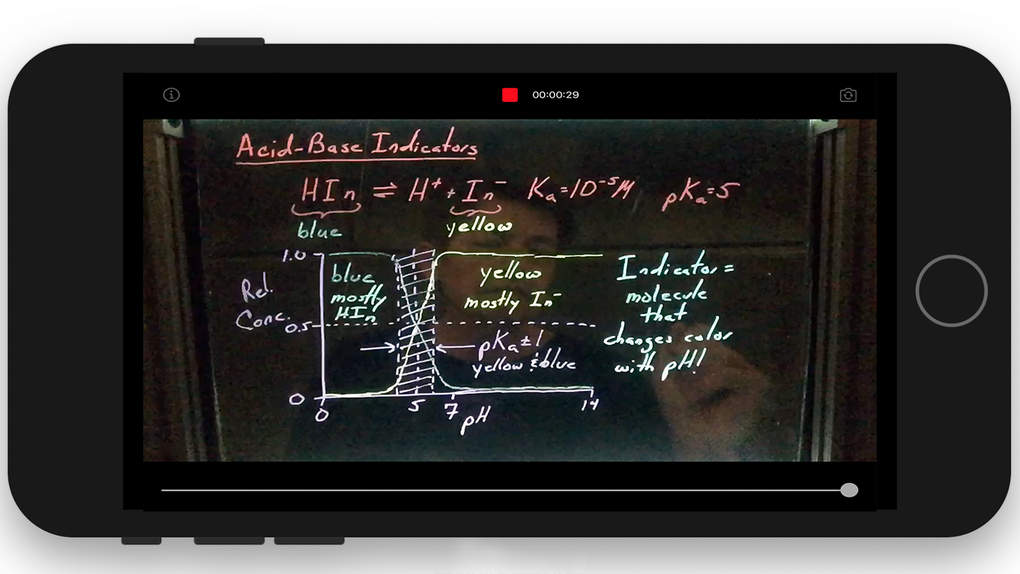 00:00:29
Acid-Base Indicators
HIn ⇌ H⁺ + In⁻ Ka=10⁻⁵M pKa=5
blue yellow
1.0
Rel. Conc.
0.5
0
blue
mostly
HIn
yellow
mostly In⁻
pKa±1
yellow & blue
0 5 7 14
pH
Indicator =
molecule
that
changes color
with pH!